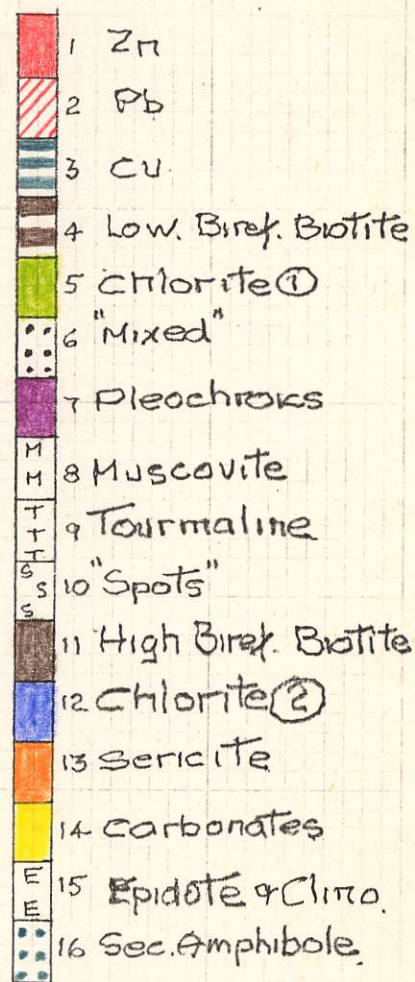 1 Zn
2 Pb
3 Cu
4 Low. Biref. Biotite
5 Chlorite ①
6 "Mixed"
7 Pleochroics
M
M 8 Muscovite
T
T 9 Tourmaline
T
S
S 10 "Spots"
S
11 High Biref. Biotite
12 Chlorite ②
13 Sericite
14 Carbonates
E
E 15 Epidote & Clino.
16 Sec. Amphibole